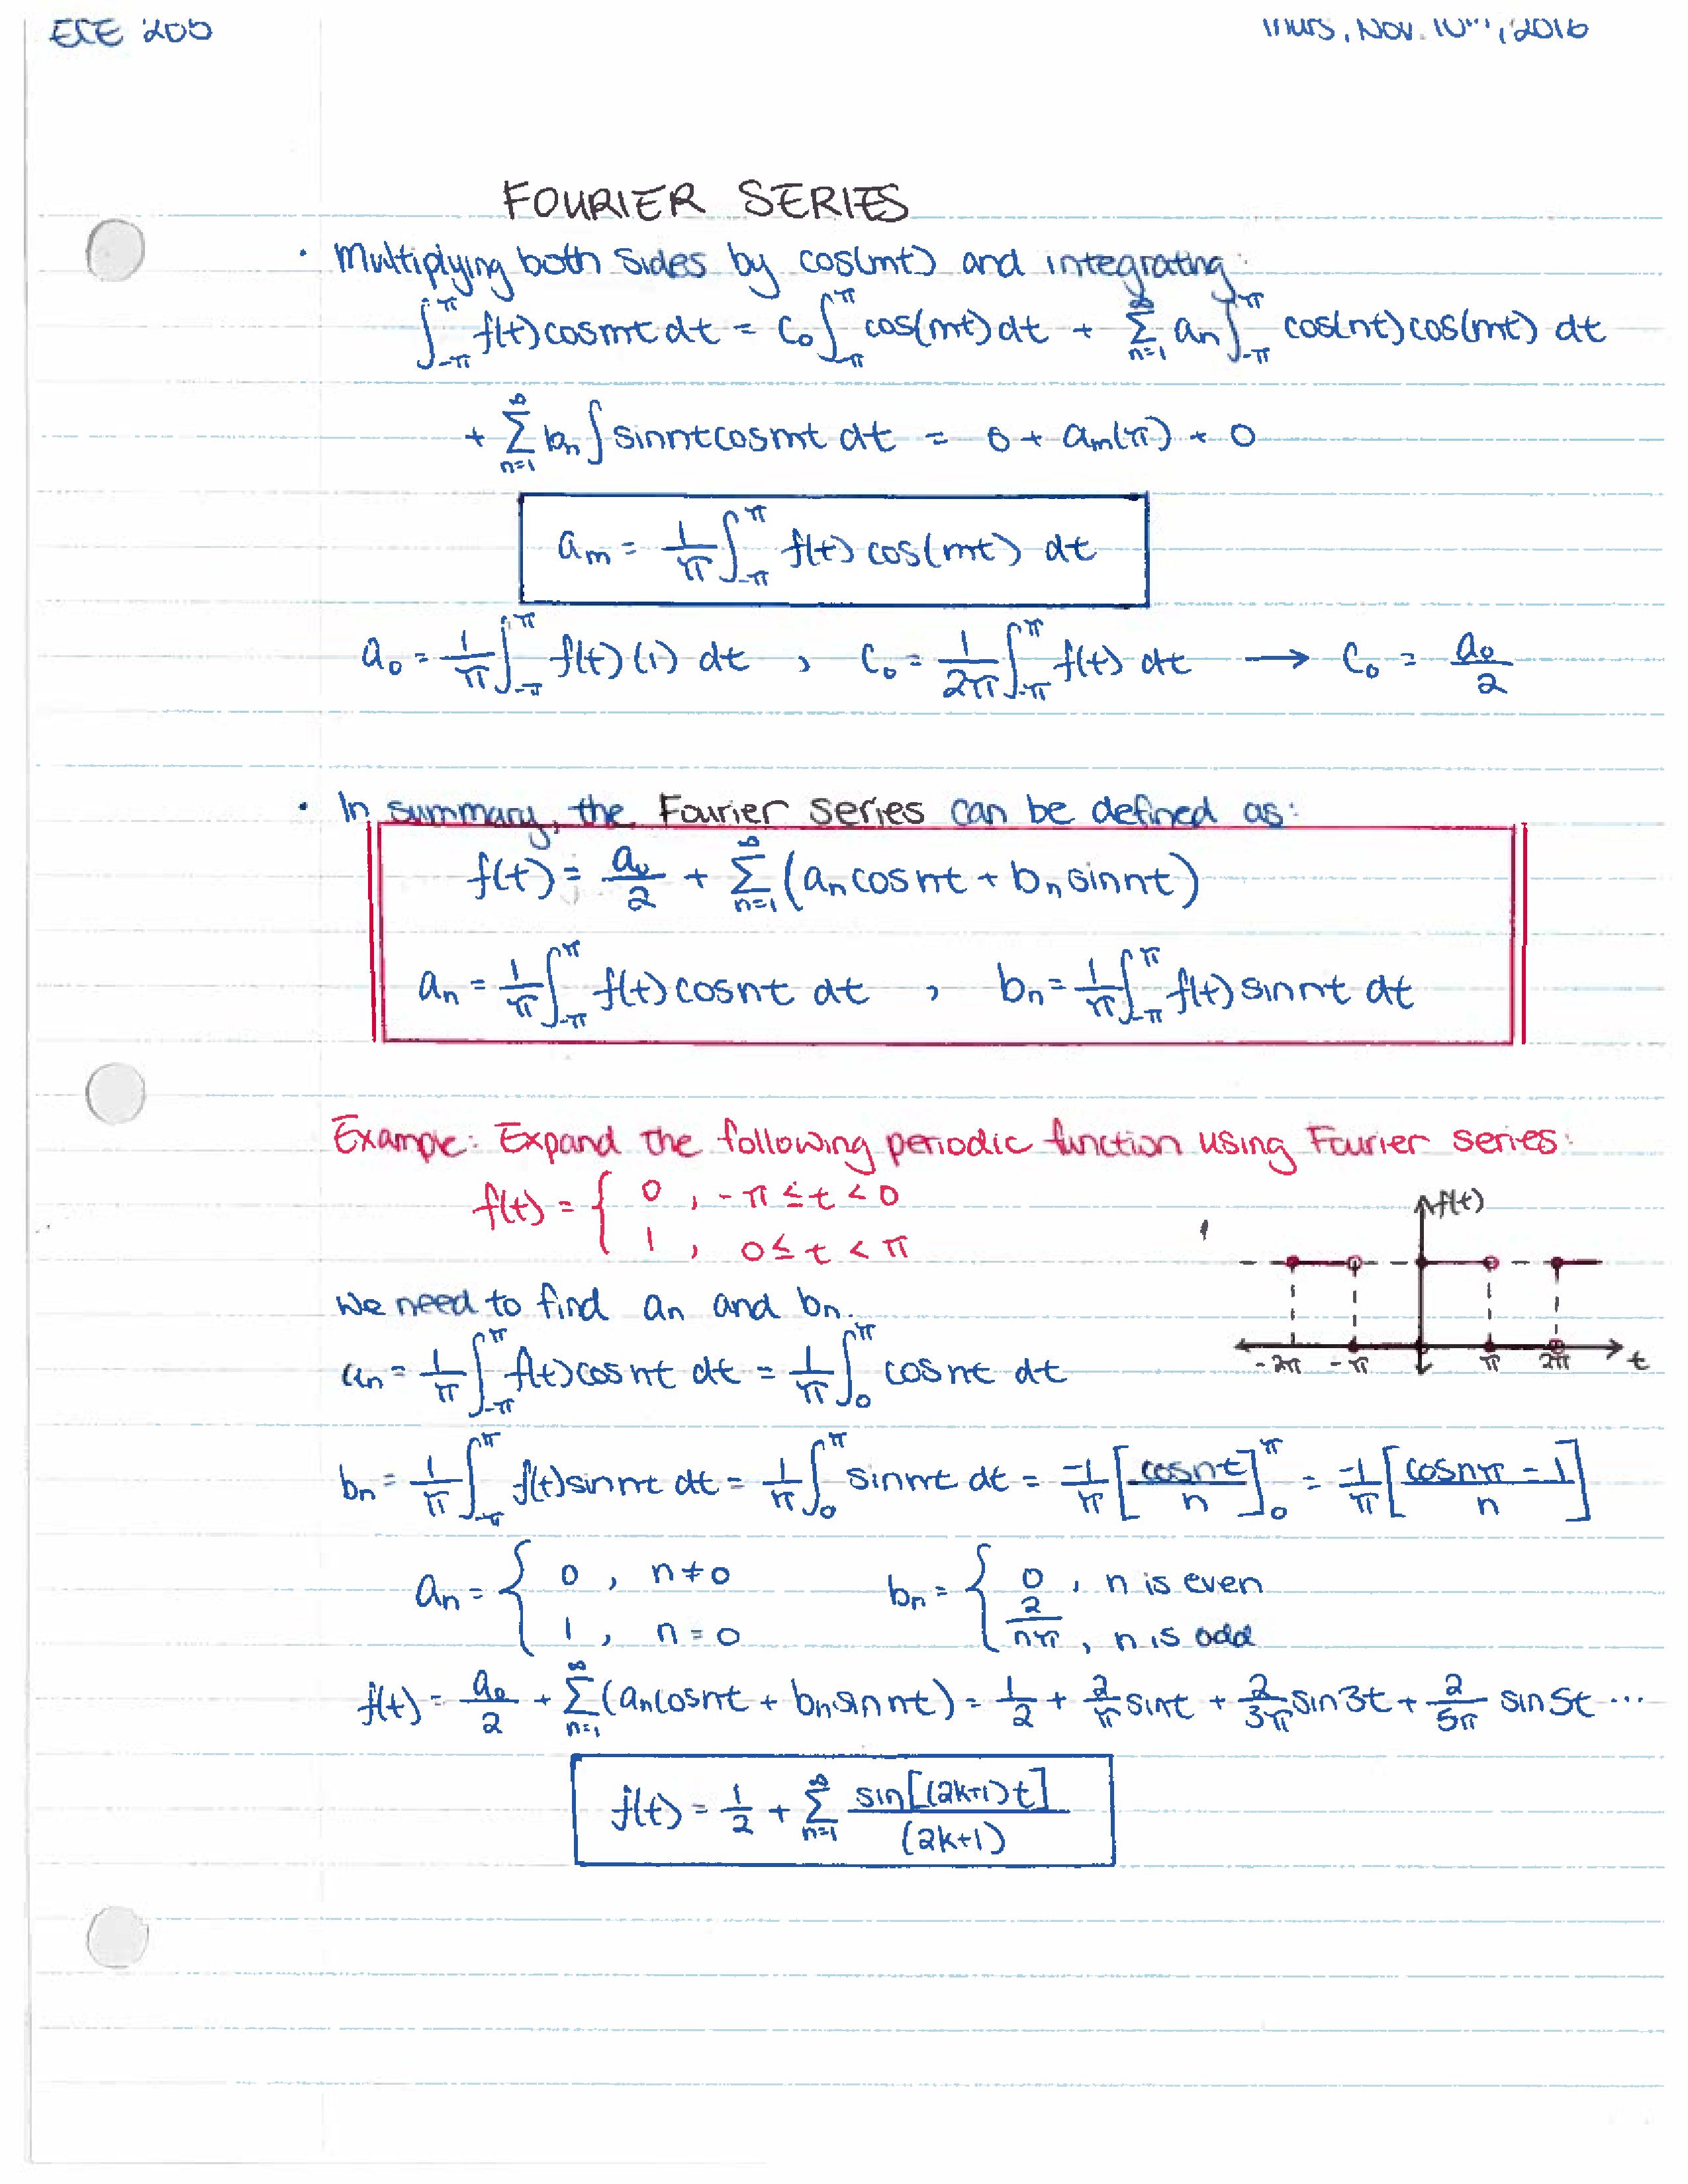 ECE 205
Thurs, Nov. 10th, 2016
FOURIER SERIES
• Multiplying both sides by cos(mt) and integrating:
∫_{-π}^{π} f(t) cosmt dt = C₀ ∫_{-π}^{π} cos(mt) dt + Σ_{n=1}^{∞} aₙ ∫_{-π}^{π} cos(nt) cos(mt) dt
+ Σ_{n=1}^{∞} bₙ ∫ sinnt cosmt dt = 0 + aₘ(π) + 0
aₘ = 1/π ∫_{-π}^{π} f(t) cos(mt) dt
a₀ = 1/π ∫_{-π}^{π} f(t)(1) dt , C₀ = 1/2π ∫_{-π}^{π} f(t) dt → C₀ = a₀/2
• In summary, the Fourier series can be defined as:
f(t) = a₀/2 + Σ_{n=1}^{∞} (aₙ cosnt + bₙ sinnt)
aₙ = 1/π ∫_{-π}^{π} f(t) cosnt dt , bₙ = 1/π ∫_{-π}^{π} f(t) sinnt dt
Example: Expand the following periodic function using Fourier series:
f(t) = { 0 , -π ≤ t < 0
1 , 0 ≤ t < π
f(t)
1
-2π -π π 2π t
We need to find aₙ and bₙ.
aₙ = 1/π ∫_{-π}^{π} f(t) cosnt dt = 1/π ∫_{0}^{π} cosnt dt
bₙ = 1/π ∫_{-π}^{π} f(t) sinnt dt = 1/π ∫_{0}^{π} sinnt dt = -1/π [cosnt/n]_{0}^{π} = -1/π [(cosnπ - 1)/n]
aₙ = { 0 , n ≠ 0 bₙ = { 0 , n is even
1 , n = 0 2/nπ , n is odd
f(t) = a₀/2 + Σ_{n=1}^{∞} (aₙ cosnt + bₙ sinnt) = 1/2 + 2/π sint + 2/3π sin3t + 2/5π sin5t ...
f(t) = 1/2 + Σ_{n=1}^{∞} sin[(2k+1)t]/(2k+1)